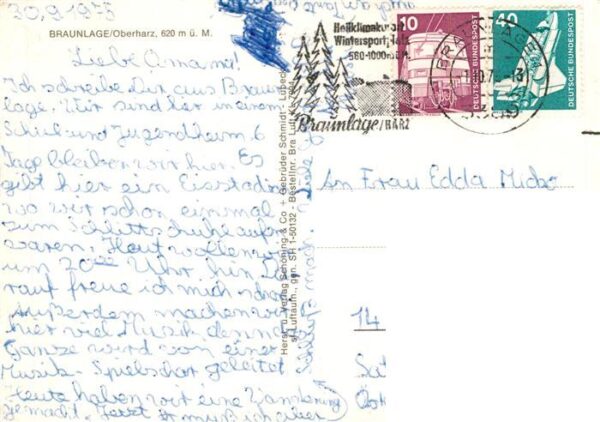 30.9.1975
BRAUNLAGE/Oberharz, 620 m ü. M.
Liebe Omama!
Ich schreibe Dir aus Braun
lage. Wir sind hier in einem
Schul und Jugendheim 6
Tage bleiben wir hier. Es
gibt hier ein Eisstadion
wo wir schon einmal
zum Schlittschuhlaufen
waren. Heut wollen wir
um 20 00 Uhr hin Da
rauf freue ich mich schon
Außerdem machen wir
hier viel Musik denn das
Ganze wird von einer
Musik-Spielschar geleitet
Heute haben wir eine Wanderung
gemacht. Jetzt muß ich aber
Herst. u. Verlag Schöning & Co + Gebrüder Schmidt - Lübeck
Luftaufn., gen. SH 1-50132 - Bestellnr. Bra Luft
Schluß machen.
Heilklimakurort
Wintersport
560-1000m
Braunlage/HARZ
10
DEUTSCHE BUNDESPOST
40
DEUTSCHE BUNDESPOST
An Frau Edda
14